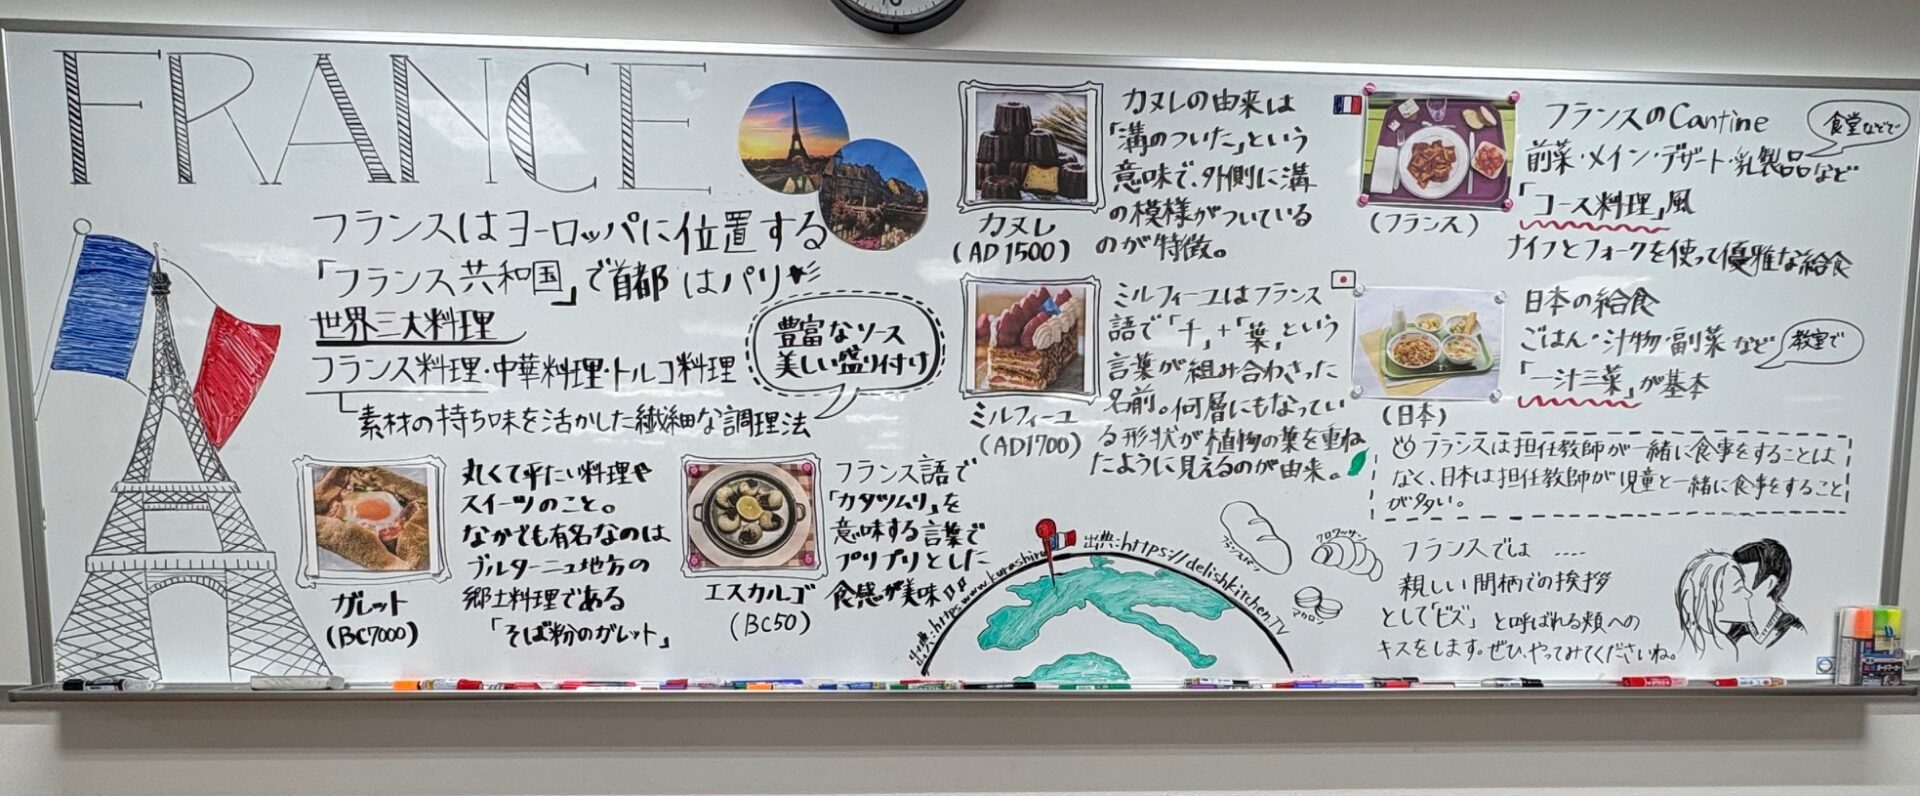 FRANCE
フランスはヨーロッパに位置する
「フランス共和国」で首都はパリ
世界三大料理
フランス料理・中華料理・トルコ料理
素材の持ち味を活かした繊細な調理法
豊富なソース
美しい盛り付け
ガレット
(BC7000)
丸くて平たい料理や
スイーツのこと。
なかでも有名なのは
ブルターニュ地方の
郷土料理である
「そば粉のガレット」
エスカルゴ
(BC50)
フランス語で
「カタツムリ」を
意味する言葉で
プリプリとした
食感が美味
カヌレ
(AD1500)
カヌレの由来は
「溝のついた」という
意味で、外側に溝
の模様がついている
のが特徴。
ミルフィーユ
(AD1700)
ミルフィーユはフランス
語で「千」+「葉」という
言葉が組み合わさった
名前。何層にもなってい
る形状が植物の葉を重ね
たように見えるのが由来。
出典:https://www.kurashiru
出典:https://delishkitchen.TV
フランスパン
クロワッサン
マカロン
(フランス)
フランスのCantine
食堂などで
前菜・メイン・デザート・乳製品など
「コース料理」風
ナイフとフォークを使って優雅な給食
(日本)
日本の給食
ごはん・汁物・副菜など
教室で
「一汁三菜」が基本
フランスは担任教師が一緒に食事をすることは
なく、日本は担任教師が児童と一緒に食事をすること
が多い。
フランスでは ‥‥
親しい間柄での挨拶
として「ビズ」と呼ばれる頬への
キスをします。ぜひ、やってみてくださいね。